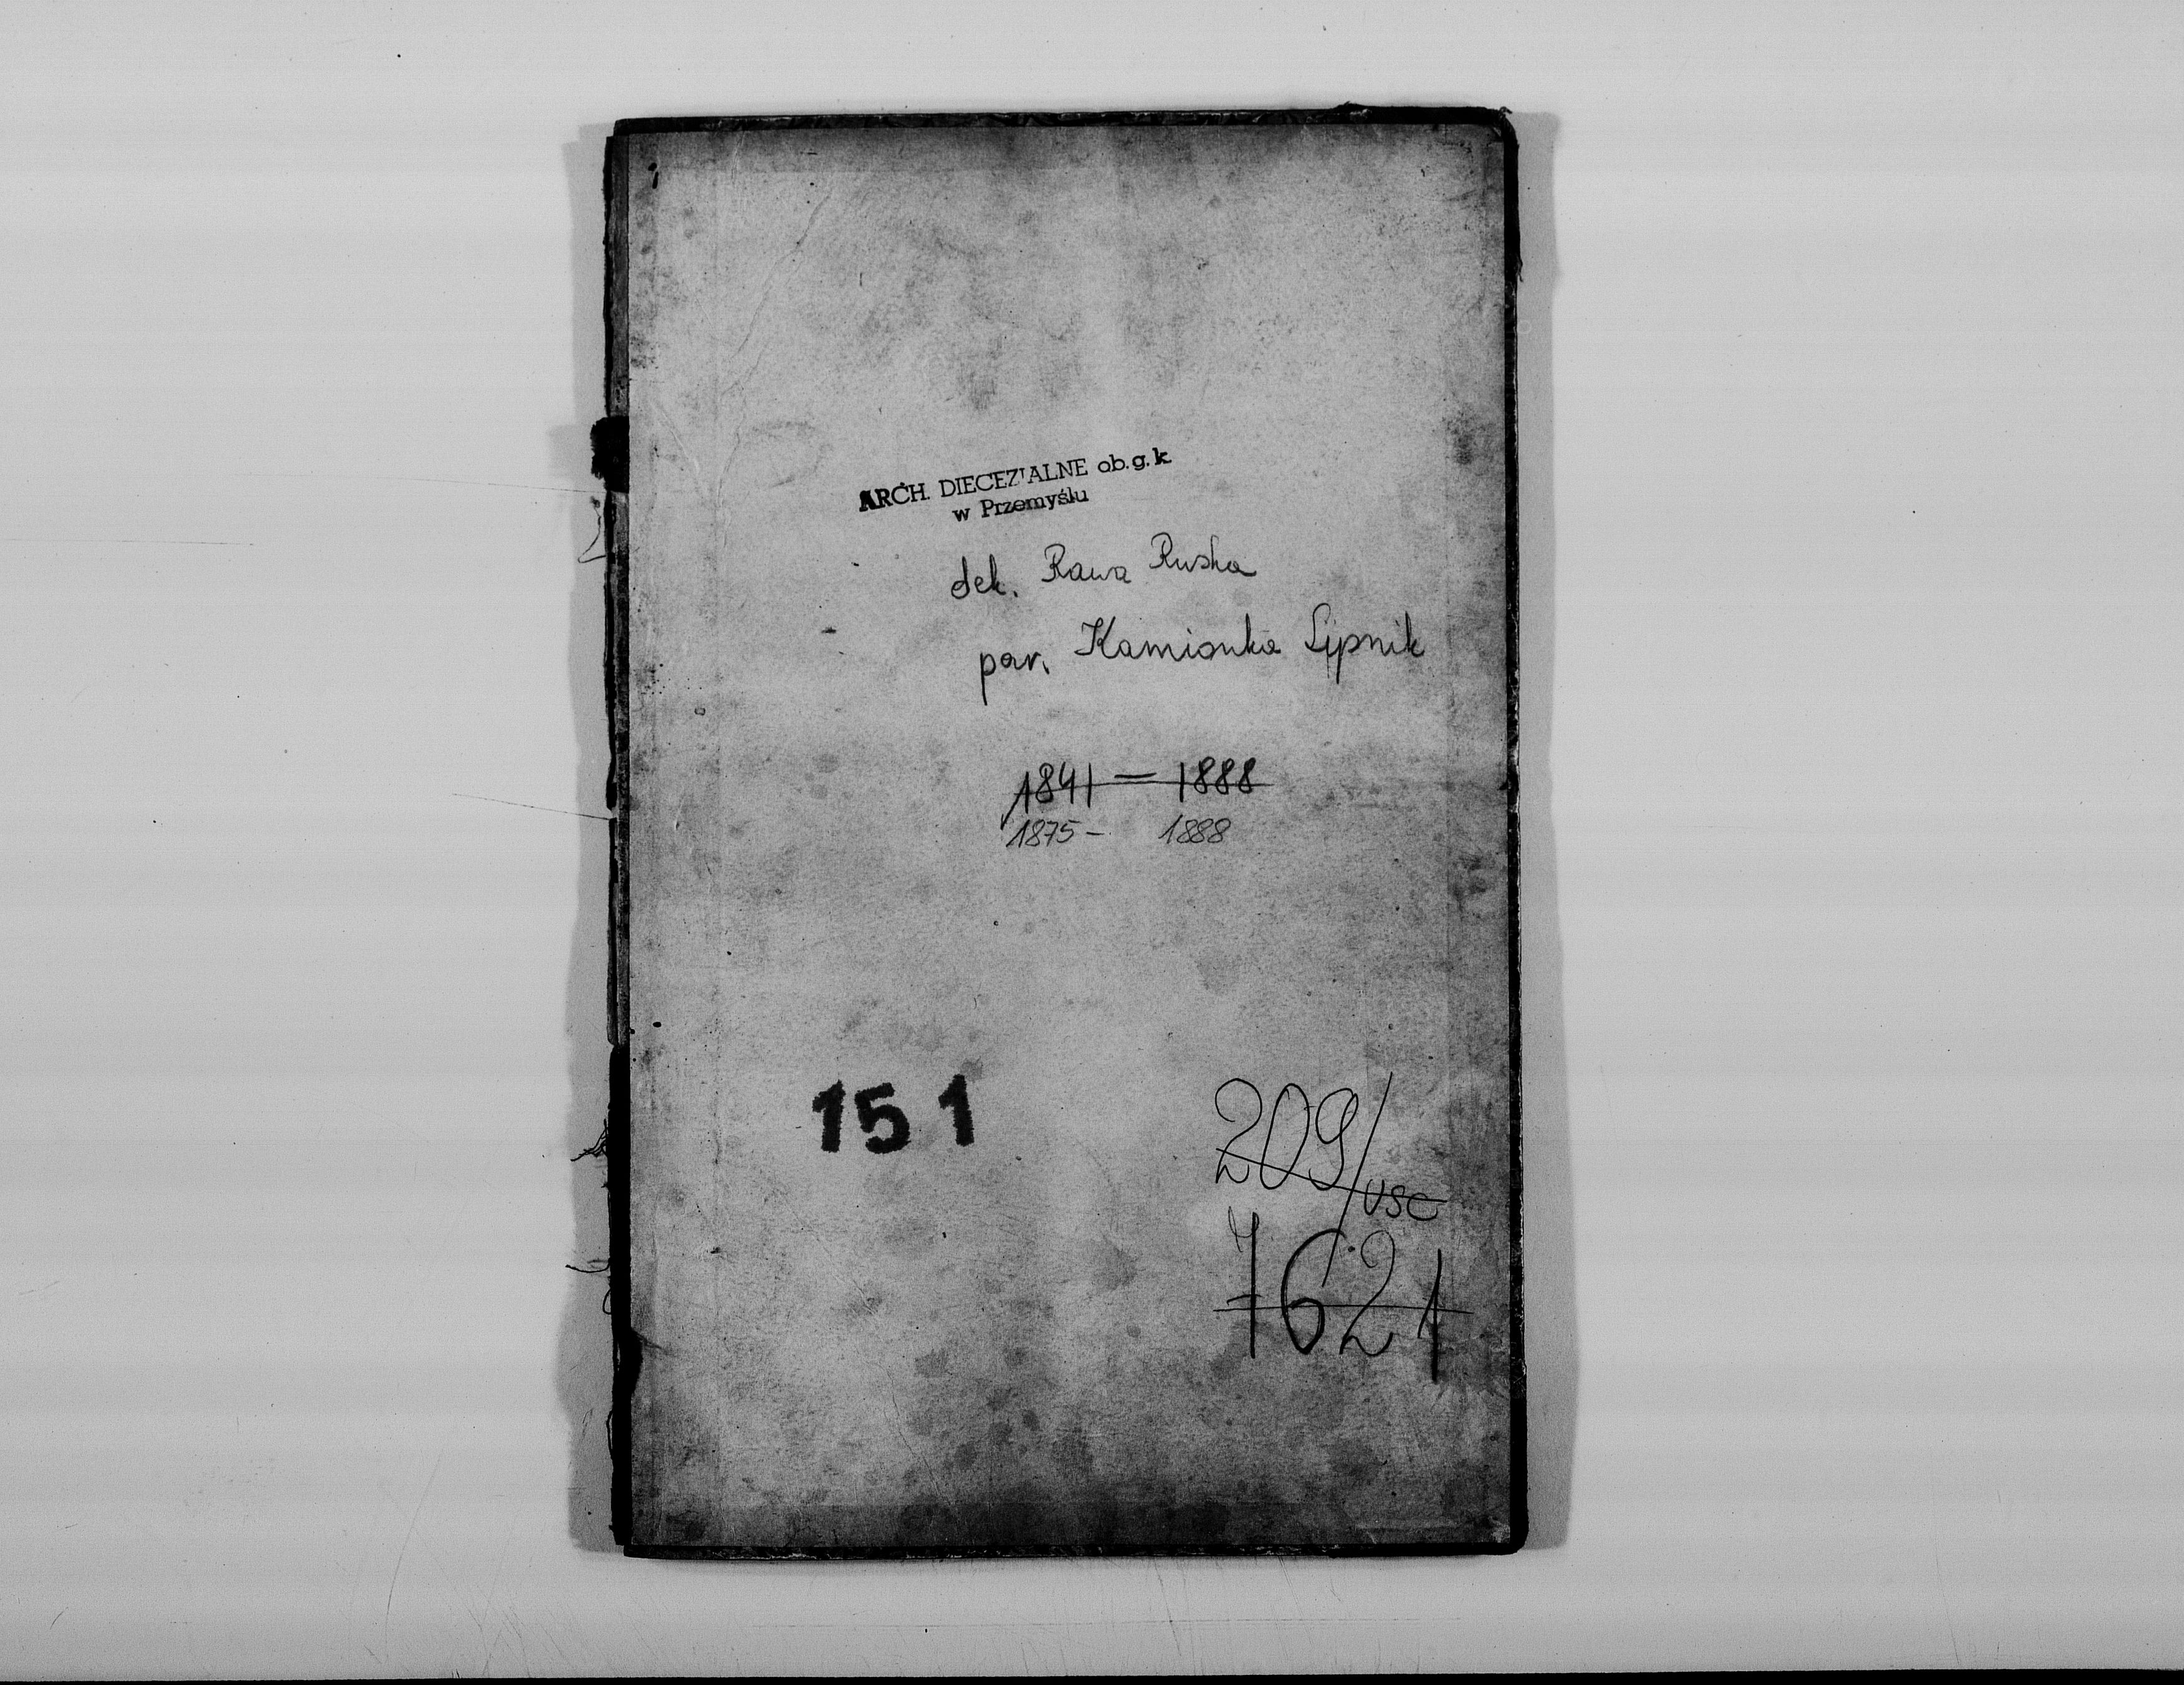 ARCH. DIECEZ'ALNE ob. g. k
w Przemyślu
dek. Rawa Ruska
par. Kamionka Lipnik
1841 — 1888
1875 - 1888
151
209/USC
7621